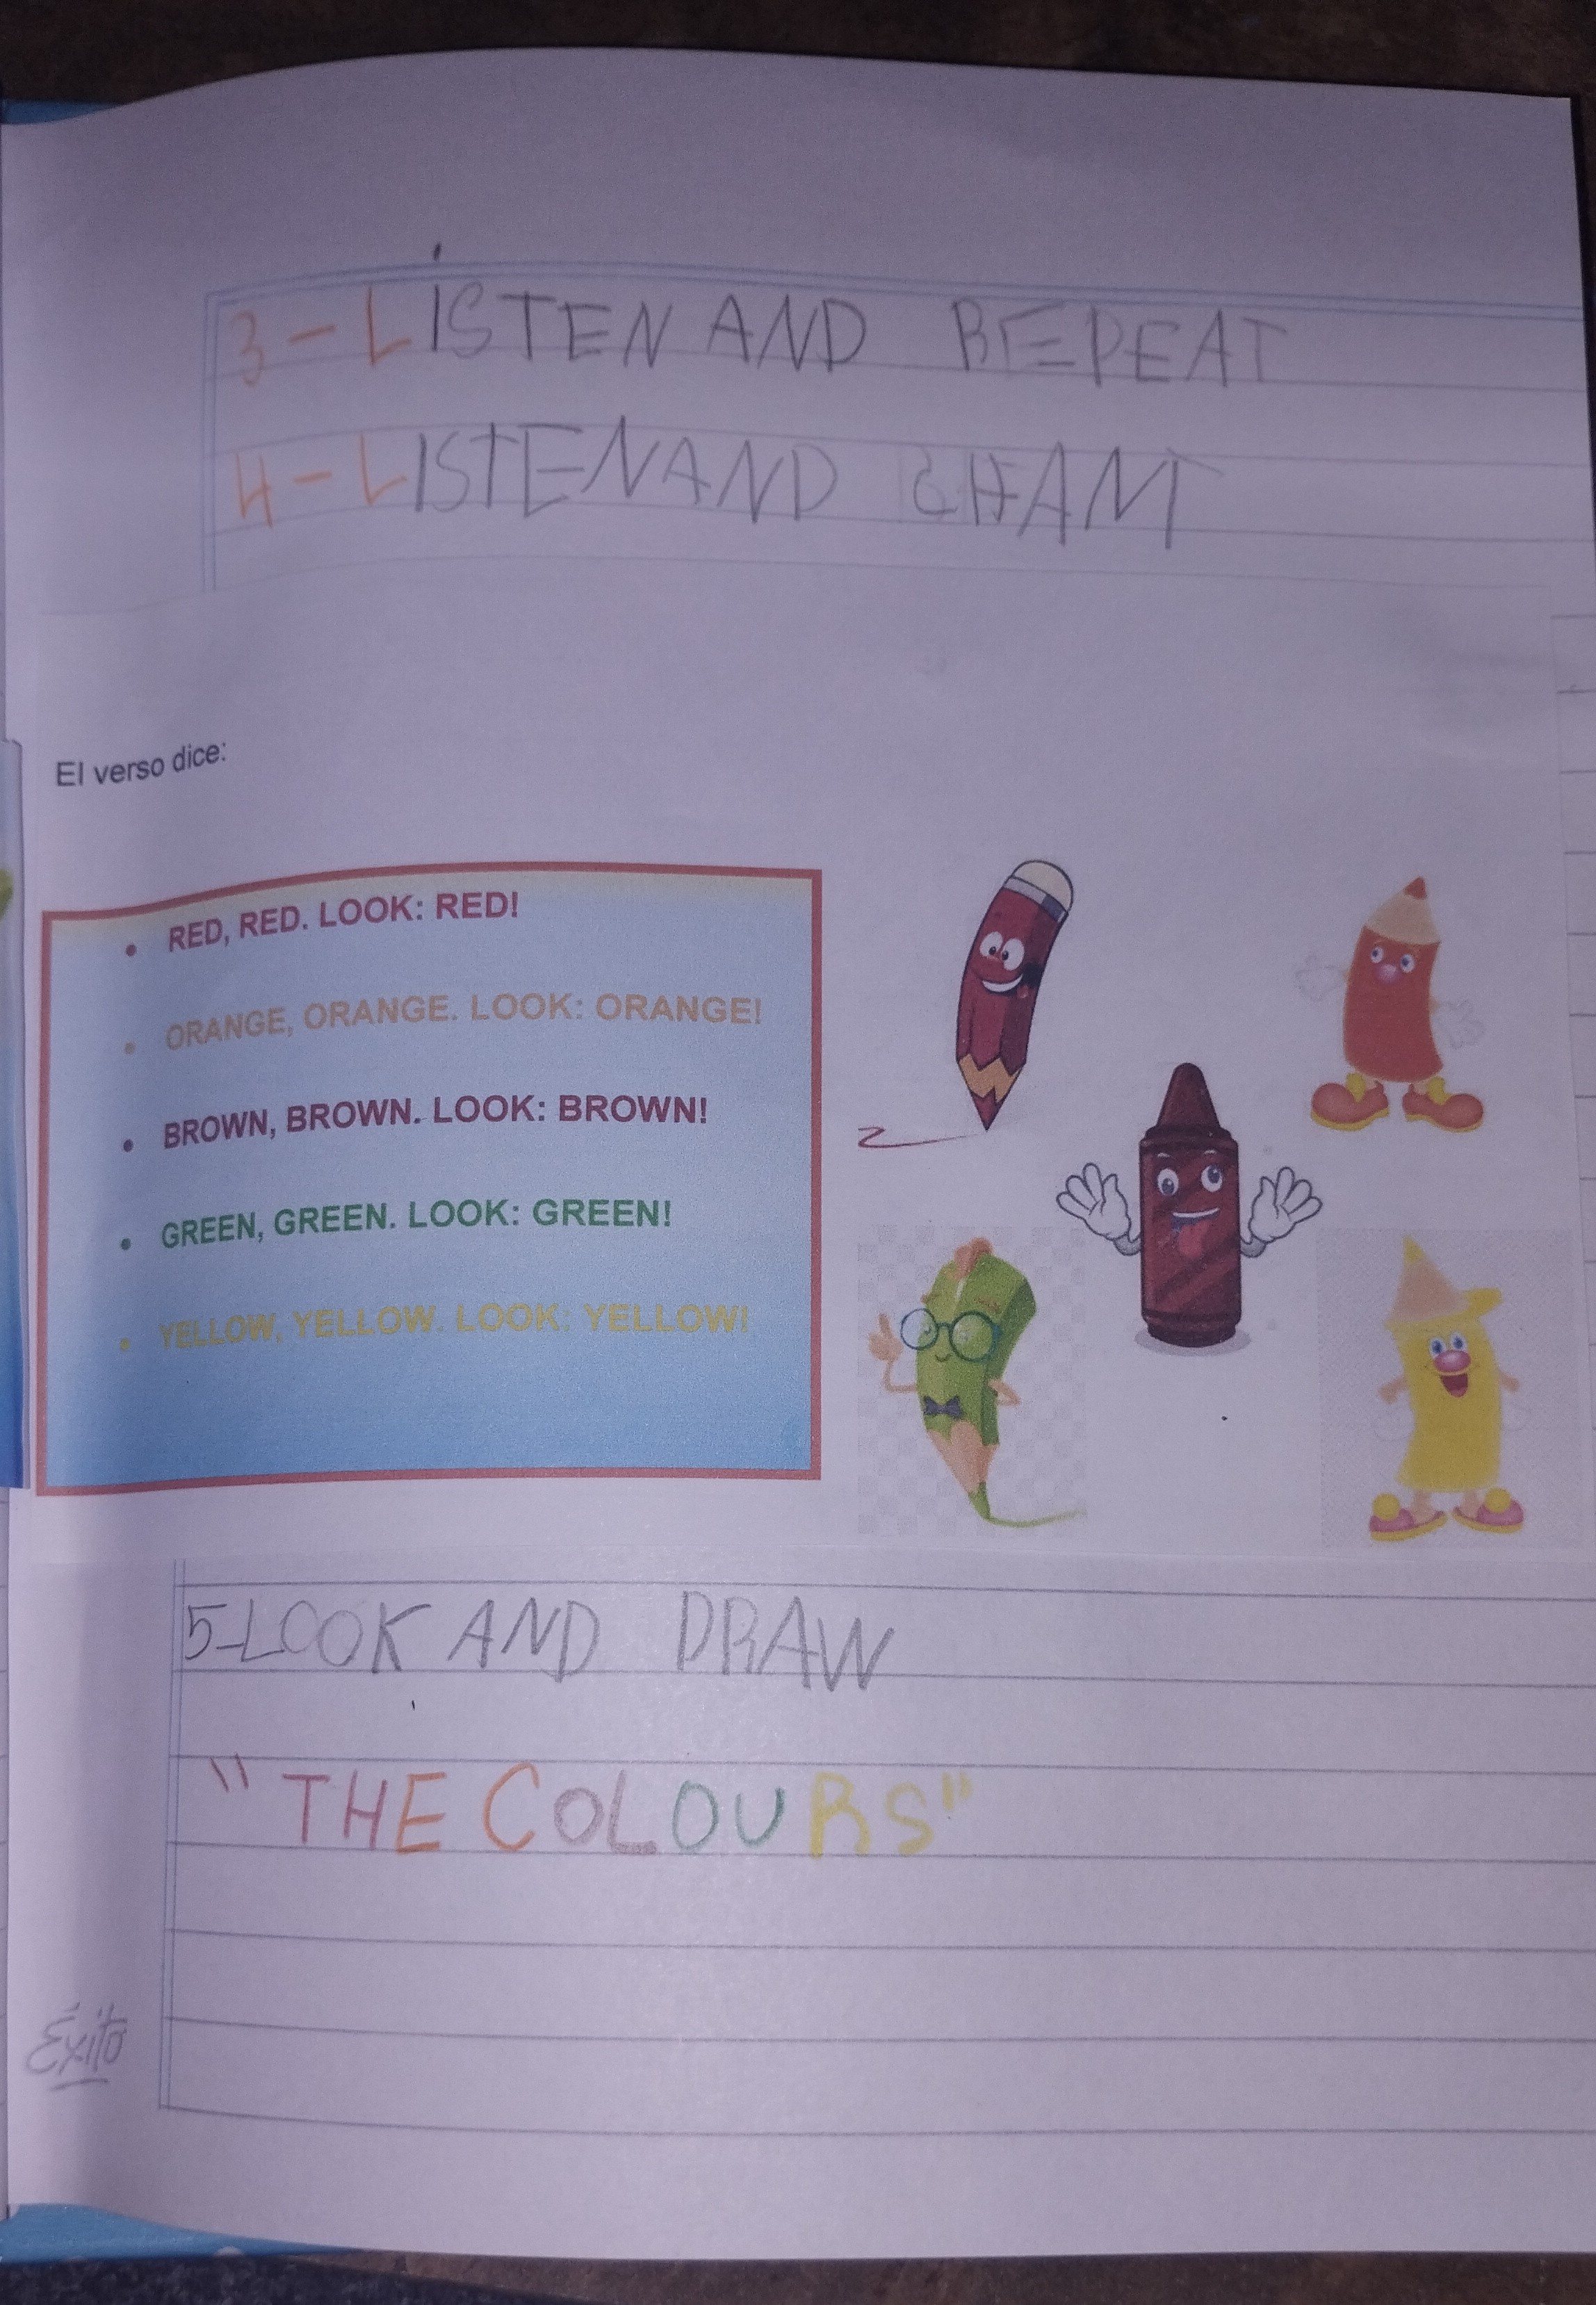 3-LISTEN AND REPEAT
4-LISTEN AND CHANT
El verso dice:
• RED, RED. LOOK: RED!
• ORANGE, ORANGE. LOOK: ORANGE!
• BROWN, BROWN. LOOK: BROWN!
• GREEN, GREEN. LOOK: GREEN!
• YELLOW, YELLOW. LOOK: YELLOW!
5-LOOK AND DRAW
"THE COLOURS"
Éxito